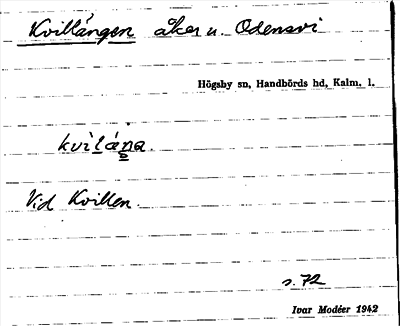 Kvillängen åker u. Odensvi
Högsby sn, Handbörds hd, Kalm. l.
kvilána.
Vid Kvillen
s. 72
Ivar Modéer 1942